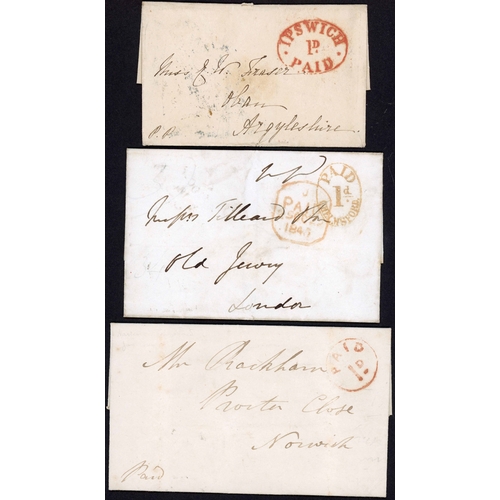 IPSWICH
1D.
PAID
Miss J. W. Fraser
Oban
Argyleshire
PAID
1d.
PAID
184
Messrs Tilleard
Old Jewry
London
PAID
1D
Mr Rackham
Procter Close
Norwich
Paid